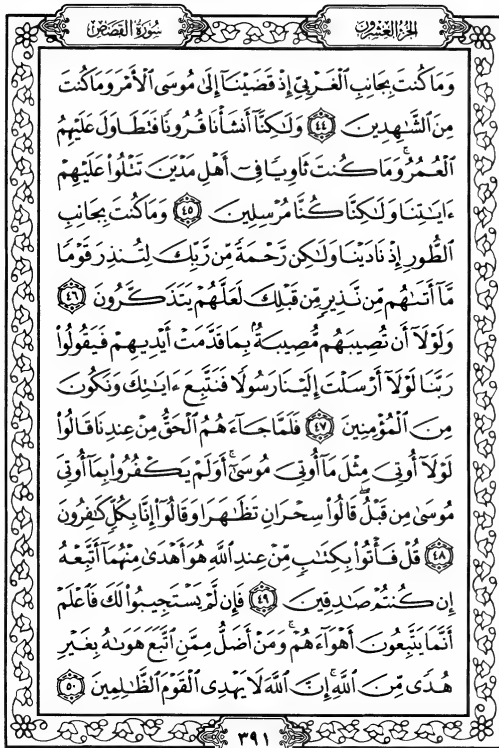 سُورَةُ القَصَصِ الجُزْءُ العِشْرُونَ
وَمَا كُنتَ بِجَانِبِ ٱلْغَرْبِىِّ إِذْ قَضَيْنَآ إِلَىٰ مُوسَى ٱلْأَمْرَ وَمَا كُنتَ
مِنَ ٱلشَّٰهِدِينَ ٤٤ وَلَٰكِنَّآ أَنشَأْنَا قُرُونًا فَتَطَاوَلَ عَلَيْهِمُ
ٱلْعُمُرُ ۚ وَمَا كُنتَ ثَاوِيًا فِىٓ أَهْلِ مَدْيَنَ تَتْلُوا۟ عَلَيْهِمْ
ءَايَٰتِنَا وَلَٰكِنَّا كُنَّا مُرْسِلِينَ ٤٥ وَمَا كُنتَ بِجَانِبِ
ٱلطُّورِ إِذْ نَادَيْنَا وَلَٰكِن رَّحْمَةً مِّن رَّبِّكَ لِتُنذِرَ قَوْمًا
مَّآ أَتَىٰهُم مِّن نَّذِيرٍ مِّن قَبْلِكَ لَعَلَّهُمْ يَتَذَكَّرُونَ ٤٦
وَلَوْلَآ أَن تُصِيبَهُم مُّصِيبَةٌۢ بِمَا قَدَّمَتْ أَيْدِيهِمْ فَيَقُولُوا۟
رَبَّنَا لَوْلَآ أَرْسَلْتَ إِلَيْنَا رَسُولًا فَنَتَّبِعَ ءَايَٰتِكَ وَنَكُونَ
مِنَ ٱلْمُؤْمِنِينَ ٤٧ فَلَمَّا جَآءَهُمُ ٱلْحَقُّ مِنْ عِندِنَا قَالُوا۟
لَوْلَآ أُوتِىَ مِثْلَ مَآ أُوتِىَ مُوسَىٰٓ ۚ أَوَلَمْ يَكْفُرُوا۟ بِمَآ أُوتِىَ
مُوسَىٰ مِن قَبْلُ ۖ قَالُوا۟ سِحْرَانِ تَظَٰهَرَا وَقَالُوٓا۟ إِنَّا بِكُلٍّ كَٰفِرُونَ
٤٨ قُلْ فَأْتُوا۟ بِكِتَٰبٍ مِّنْ عِندِ ٱللَّهِ هُوَ أَهْدَىٰ مِنْهُمَآ أَتَّبِعْهُ
إِن كُنتُمْ صَٰدِقِينَ ٤٩ فَإِن لَّمْ يَسْتَجِيبُوا۟ لَكَ فَٱعْلَمْ
أَنَّمَا يَتَّبِعُونَ أَهْوَآءَهُمْ ۚ وَمَنْ أَضَلُّ مِمَّنِ ٱتَّبَعَ هَوَىٰهُ بِغَيْرِ
هُدًى مِّنَ ٱللَّهِ ۚ إِنَّ ٱللَّهَ لَا يَهْدِى ٱلْقَوْمَ ٱلظَّٰلِمِينَ ٥٠
٣٩١